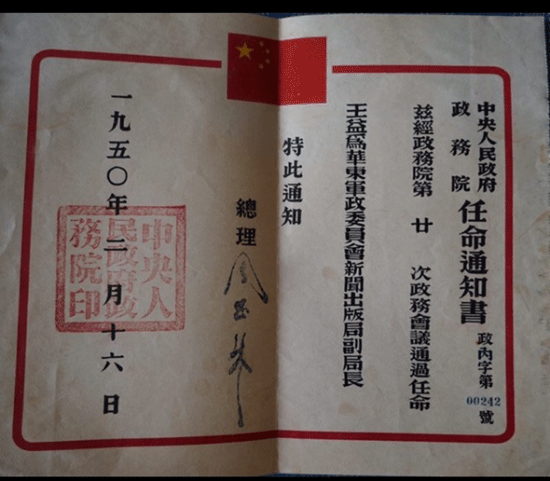 中央人民政府
政務院
任命通知書
政內字第
00242
號
茲經政務院第 廿 次政務會議通過任命
王益爲華東軍政委員會新聞出版局副局長
特此通知
總理 周恩來
一九五〇年二月十六日
中央人
民政府政
務院印